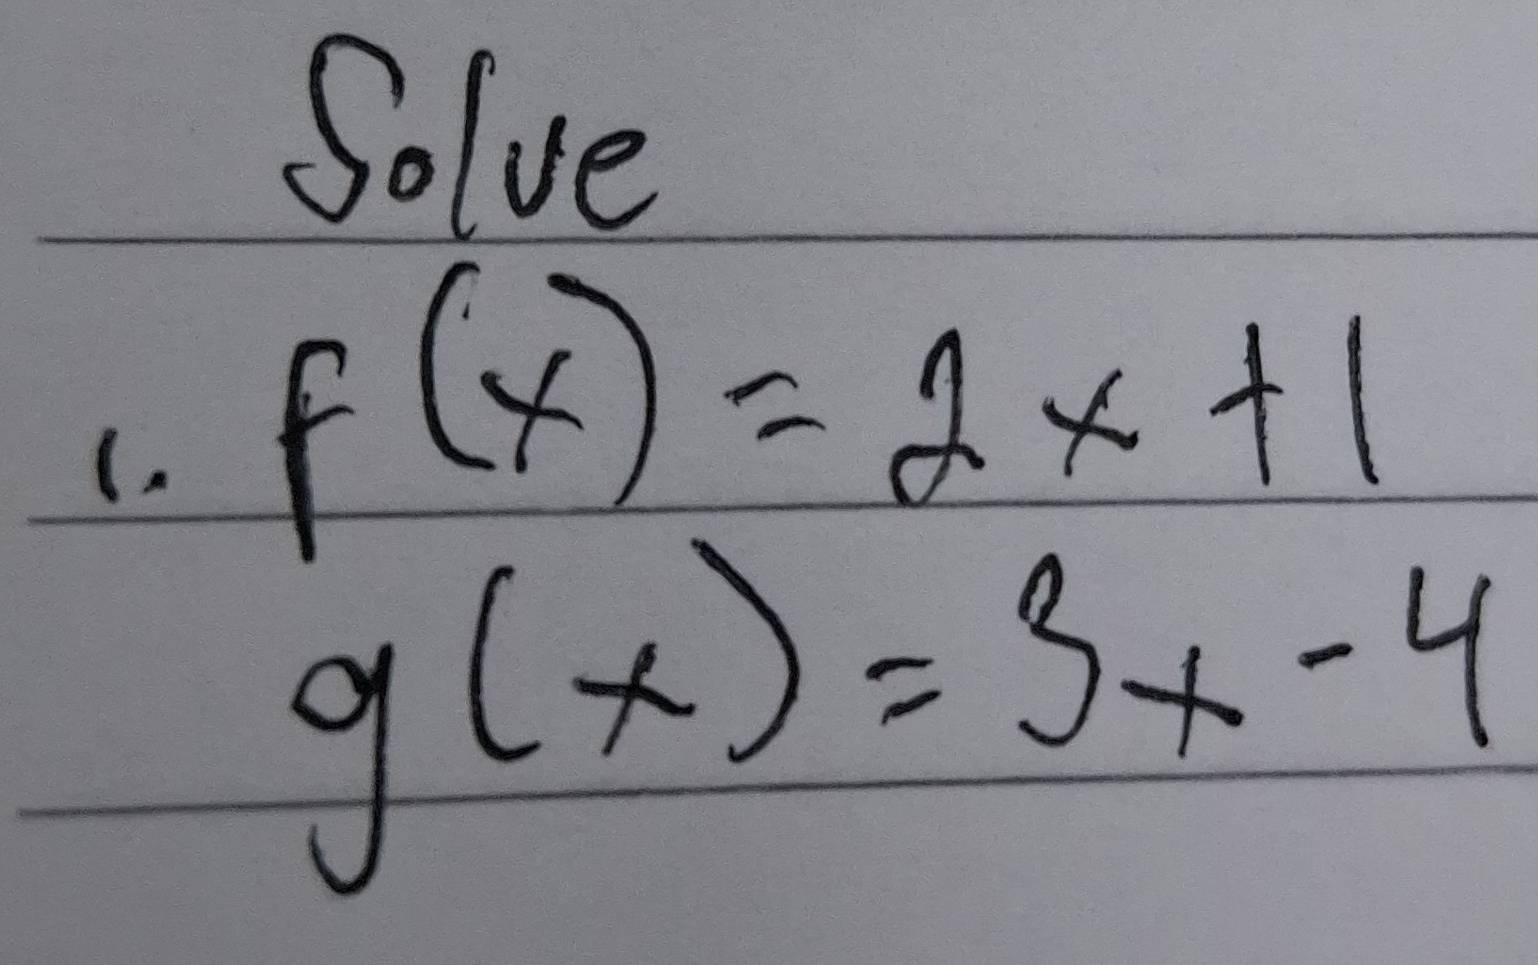 Solve
1. f(x) = 2x + 1
g(x) = 3x - 4